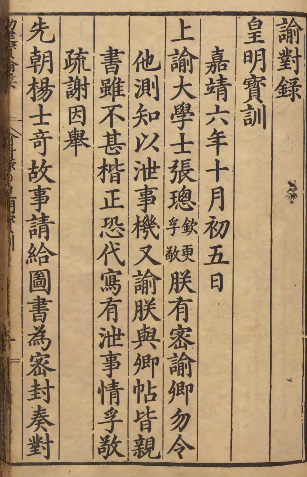 諭對錄
皇明寶訓
嘉靖六年十月初五日
上諭大學士張璁欽更孚敬朕有密諭卿勿令
他測知以泄事機又諭朕與卿帖皆親
書雖不甚楷正恐代寫有泄事情孚敬
疏謝因舉
先朝楊士奇故事請給圖書為密封奏對